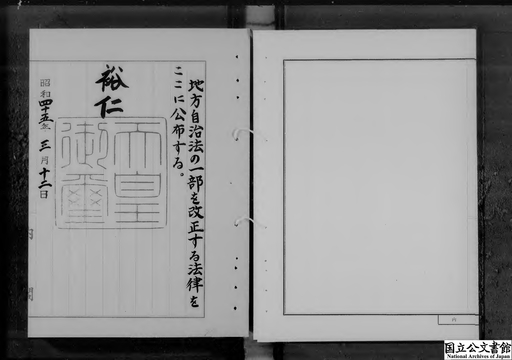 地方自治法の一部を改正する法律を
ここに公布する。
裕仁
天皇
御璽
昭和四十五年三月十二日
内
閣
国立公文書館
National Archives of Japan